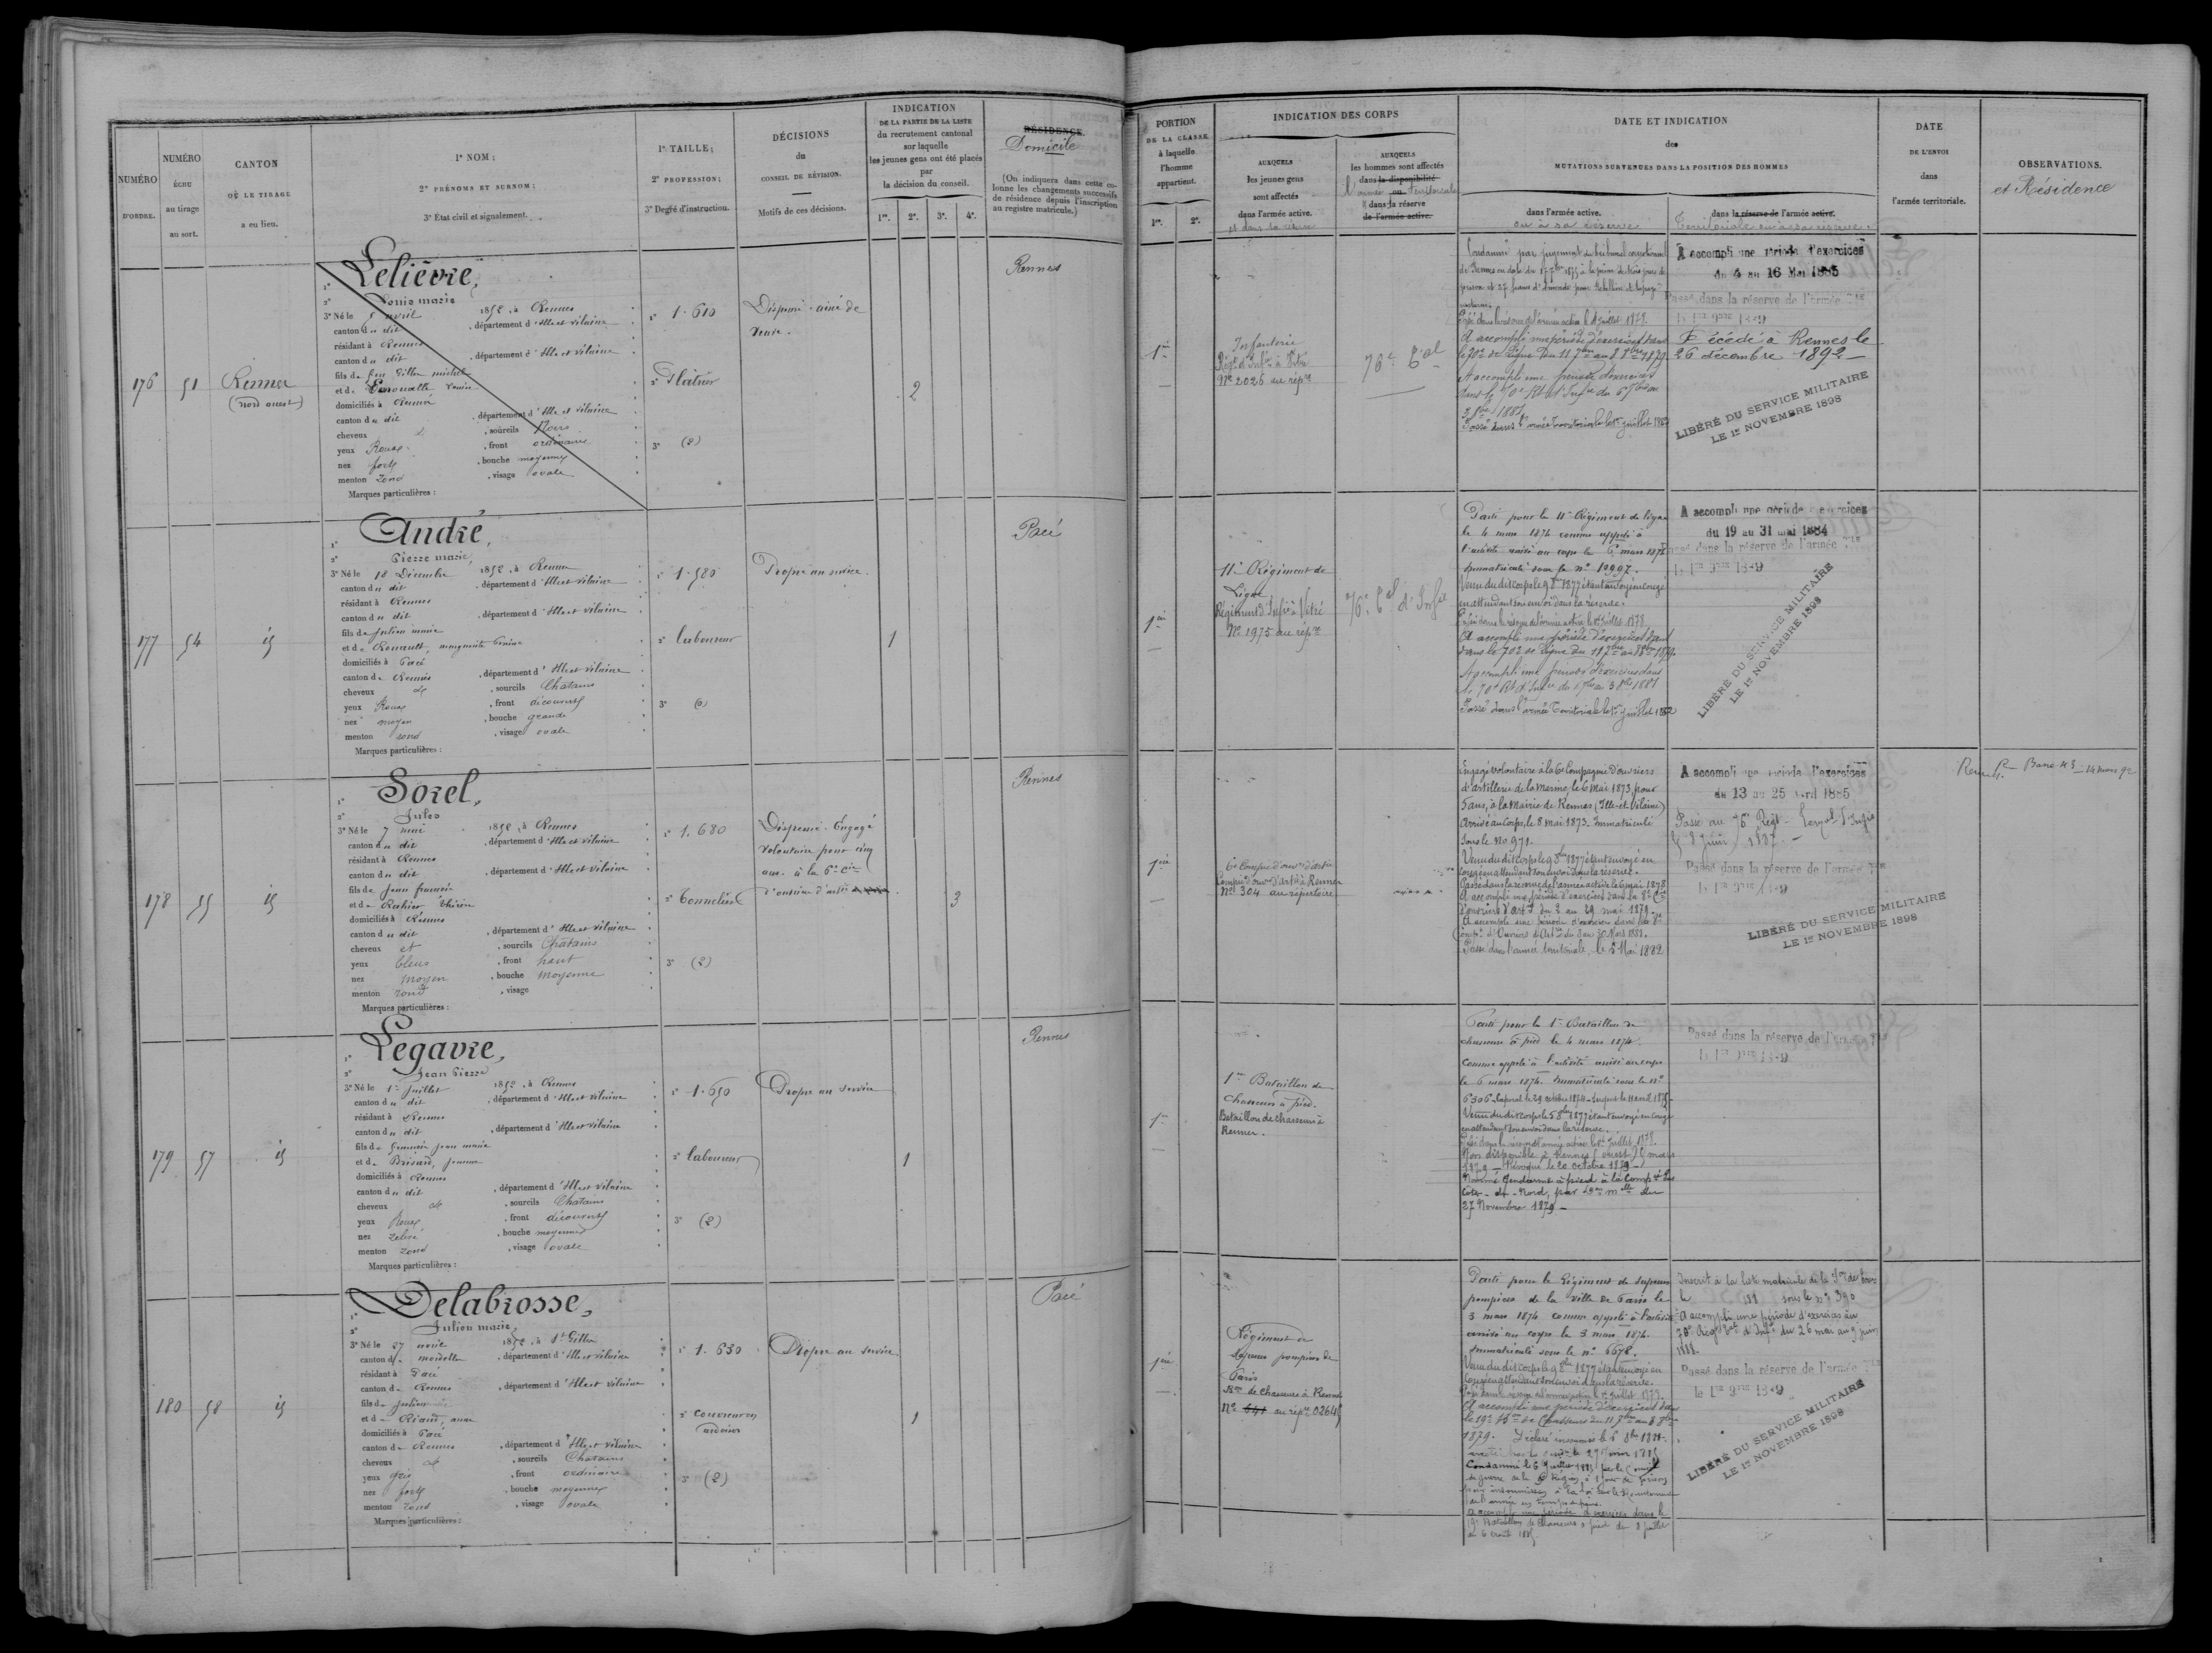 NUMÉRO
D'ORDRE.
NUMÉRO
ÉCHU
au tirage
au sort.
CANTON
OÙ LE TIRAGE
a eu lieu.
1º NOM;
2º PRÉNOMS ET SURNOM;
3º État civil et signalement.
1º TAILLE;
2º PROFESSION;
3º Degré d'instruction.
DÉCISIONS
du
CONSEIL DE RÉVISION.
Motifs de ces décisions.
INDICATION
DE LA PARTIE DE LA LISTE
du recrutement cantonal
sur laquelle
les jeunes gens ont été placés
par
la décision du conseil.
1re. 2e. 3e. 4e.
RÉSIDENCE.
Domicile
(On indiquera dans cette co-
lonne les changements successifs
de résidence depuis l'inscription
au registre matricule.)
176
51
Rennes
(nord ouest)
1º Lelièvre,
2º Louis marie
3º Né le 5 avril 1852, à Rennes
canton du dit, département d'Ille et vilaine
résidant à Rennes
canton du dit, département d'Ille et vilaine
fils de feu Gilles michel
et de
domiciliés à Rennes
canton du dit, département d'Ille et vilaine
cheveux et, sourcils Noirs
yeux Roux, front ordinaire
nez fort, bouche moyenne
menton rond, visage ovale
Marques particulières :
1º 1.610
2º Plâtrier
3º (2)
Dispensé : aîné de
veuve.
2
Rennes
177
54
id
1º André,
2º Pierre marie,
3º Né le 18 Décembre 1852, à Rennes
canton du dit, département d'Ille et vilaine
résidant à Rennes
canton du dit, département d'Ille et vilaine
fils de Julien marie
et de Renault, marguerite
domiciliés à Pacé
canton de Rennes, département d'Ille et vilaine
cheveux et, sourcils Chatains
yeux Roux, front découvert
nez moyen, bouche grande
menton rond, visage ovale
Marques particulières :
1º 1.580
2º laboureur
3º (0)
Propre au service.
1
Pacé
178
55
id
1º Sorel,
2º Jules
3º Né le 7 mai 1852, à Rennes
canton du dit, département d'Ille et vilaine
résidant à Rennes
canton du dit, département d'Ille et vilaine
fils de Jean françois
et de
domiciliés à Rennes
canton du dit, département d'Ille et vilaine
cheveux et, sourcils Chatains
yeux bleus, front haut
nez moyen, bouche moyenne
menton rond, visage
Marques particulières :
1º 1.680
2º Tonnelier
3º (2)
Dispensé. Engagé
volontaire pour cinq
ans à la 6e Cie
d'ouvriers d'artie
3
Rennes
179
57
id
1º Legavre,
2º Jean Pierre
3º Né le 1er Juillet 1852, à Rennes
canton du dit, département d'Ille et vilaine
résidant à Rennes
canton du dit, département d'Ille et vilaine
fils de françois jean marie
et de Brisard, jeanne
domiciliés à Rennes
canton du dit, département d'Ille et vilaine
cheveux et, sourcils Chatains
yeux Roux, front découvert
nez, bouche moyenne
menton rond, visage ovale
Marques particulières :
1º 1.650
2º laboureur
3º (2)
Propre au service
1
Rennes
180
58
id
1º Delabrosse,
2º Julien marie,
3º Né le 27 1852, à St Gilles
canton de mordelles, département d'Ille et vilaine
résidant à Pacé
canton de Rennes, département d'Ille et vilaine
fils de Julien
et de Riaud, anne
domiciliés à Pacé
canton de Rennes, département d'Ille et vilaine
cheveux et, sourcils Chatains
yeux gris, front ordinaire
nez fort, bouche moyenne
menton rond, visage ovale
Marques particulières :
1º 1.630
2º couvreur en
ardoises
3º (2)
Propre au service
1
Pacé
PORTION
DE LA CLASSE
à laquelle
l'homme
appartient.
1re. 2e.
INDICATION DES CORPS
AUXQUELS
les jeunes gens
sont affectés
dans l'armée active.
et dans sa réserve
AUXQUELS
les hommes sont affectés
dans la disponibilité
l'armée ou territoriale
dans la réserve
de l'armée active.
DATE ET INDICATION
des
MUTATIONS SURVENUES DANS LA POSITION DES HOMMES
dans l'armée active.
ou à sa réserve
dans la réserve de l'armée active.
Territoriale ou à sa réserve.
DATE
DE L'ENVOI
dans
l'armée territoriale.
OBSERVATIONS.
et Résidence
1ère
Infanterie
Régt d'Infie à Vitré
No 2026 au répre
76e Tal
Condamné par jugement du tribunal correctionnel
de Rennes en date du 17 7bre 1875 à la peine de trois jours de
prison et 27 francs d'amende pour rébellion et tapage
nocturne.
Passé dans la réserve de l'armée active le 1er Juillet 1878.
A accompli une période d'exercices dans
le 70e de ligne du 11 7bre au 8 8bre 1879.
A accompli une période d'exercices
dans le 70e Rt d'Infie du 6 7bre au
3 8bre 1881
Passé dans l'armée Territoriale le 1er juillet 1882
A accompli une période d'exercices
du 4 au 16 Mai 1885
Passé dans la réserve de l'armée Tle
le 1er 9bre 1889
Décédé à Rennes le
26 décembre 1892
LIBÉRÉ DU SERVICE MILITAIRE
LE 1er NOVEMBRE 1898
1ère
11e Régiment de
Ligne
Régiment d'Infie à Vitré
No 1975 au répre
76e Tal d'Infie
Parti pour le 11e Régiment de ligne
le 4 mars 1874 comme appelé à
l'activité arrivé au corps le 6 mars 1874
Immatriculé sous le no 10997.
Venu du dit corps le 9 8bre 1877 étant envoyé en congé
en attendant son envoi dans la réserve.
Passé dans la réserve de l'armée active le 1er Juillet 1878.
A accompli une période d'exercices
dans le 70e de ligne du 11 7bre au 8 8bre 1879.
A accompli une période d'exercices dans
le 70e Rt d'Infie du 6 7bre au 3 8bre 1881
Passé dans l'armée Territoriale le 1er juillet 1882
A accompli une période d'exercices
du 19 au 31 mai 1884
Passé dans la réserve de l'armée Tle
le 1er 9bre 1889
LIBÉRÉ DU SERVICE MILITAIRE
LE 1er NOVEMBRE 1898
1ère
6e Compie d'ouvrs d'artie
Compie d'ouvrs d'artie à Rennes
No 304 au répertoire
Engagé volontaire à la 6e Compagnie d'ouvriers
d'artillerie de la Marine, le 6 Mai 1873, pour
5 ans, à la Mairie de Rennes (Ille-et-Vilaine)
Arrivé au Corps, le 8 mai 1873. Immatriculé
sous le No 971.
Venu du dit corps le 9 8bre 1877 étant envoyé en
congé en attendant son envoi dans la réserve.
Passé dans la réserve de l'armée active le 6 mai 1878
A accompli une période d'exercices dans la 8e Cie
d'ouvriers d'artie du 2 au 29 mai 1879.
A accompli une période d'exercices dans la 8e
Compie d'Ouvriers d'Artie du 3 au 30 Mars 1881.
Passé dans l'armée territoriale, le 6 Mai 1882
A accompli une période d'exercices
du 13 au 25 avril 1885
Passé au 76e Régt Territ. d'Infie
le 8 Juin 1887.
Passé dans la réserve de l'armée Tle
le 1er 9bre 1889
LIBÉRÉ DU SERVICE MILITAIRE
LE 1er NOVEMBRE 1898
1re
1er Bataillon de
chasseurs à pied.
Bataillon de chasseurs à
Rennes.
Parti pour le 1er Bataillon de
chasseurs à pied le 4 mars 1874.
Comme appelé à l'activité arrivé au corps
le 6 mars 1874. Immatriculé sous le no
6306. Caporal le 29 octobre 1874. Sergent le 11 avril 1875.
Venu du dit corps le 5 8bre 1877 étant envoyé en congé
en attendant son envoi dans la réserve.
Passé dans la réserve de l'armée active le 1er Juillet 1878.
Non disponible à Rennes (ouest) mars
1879. Révoqué le 20 octobre 1879
Nommé Gendarme à pied à la Compie des
Côtes-du-Nord, par don mlle du
27 Novembre 1879
Passé dans la réserve de l'armée Tle
le 1er 9bre 1889
1ère
Régiment de
sapeurs pompiers de
Paris
Bon de chasseurs à Rennes
No 641 au répre 02648
Parti pour le Régiment de sapeurs
pompiers de la ville de Paris le
3 mars 1874 comme appelé à l'activité
arrivé au corps le 3 mars 1874.
Immatriculé sous le no 6678.
Venu du dit corps le 9 8bre 1877 étant envoyé en
Congé en attendant son envoi dans la réserve.
Passé dans la réserve de l'armée active le 1er Juillet 1878.
A accompli une période d'exercices dans
le 19e Bon de Chasseurs du 11 7bre au 8 8bre
1879. Déclaré insoumis le 6 8bre 1881.
Condamné le 6 Juillet 1885 par le Conseil
de guerre de la Région, à 1 jour de prison
pour insoumission à la loi sur le Recrutement
de l'armée en temps de paix.
A accompli une période d'exercices dans le
19e Bataillon de Chasseurs à pied du 8 juillet
au 6 août 1885.
Inscrit à la liste matricule de la
sous le no 390
A accompli une période d'exercices au
76e Régt Tal d'Infie du 26 mai au 9 juin
Passé dans la réserve de l'armée Tle
le 1er 9bre 1889
LIBÉRÉ DU SERVICE MILITAIRE
LE 1er NOVEMBRE 1898